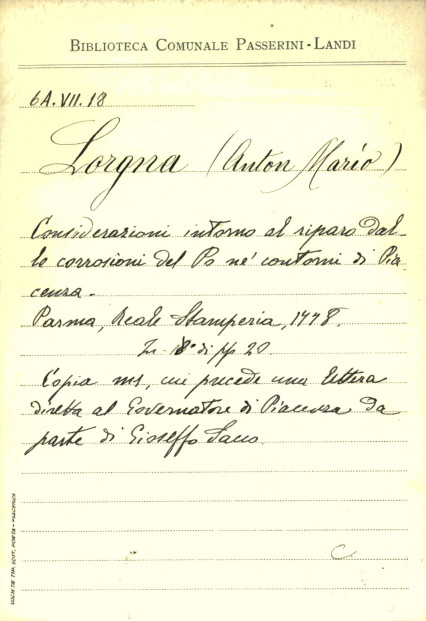 BIBLIOTECA COMUNALE PASSERINI-LANDI
6A.VII.18
Lorgna (Anton Mario)
Considerazioni intorno al riparo dal-
le corrosioni del Po ne' contorni di Pia
cenza.
Parma, Reale Stamperia, 1778.
In 8° di pp 20.
Copia ms, cui precede una lettera
diretta al Governatore di Piacenza da
parte di Gioseffo Sacco.
C